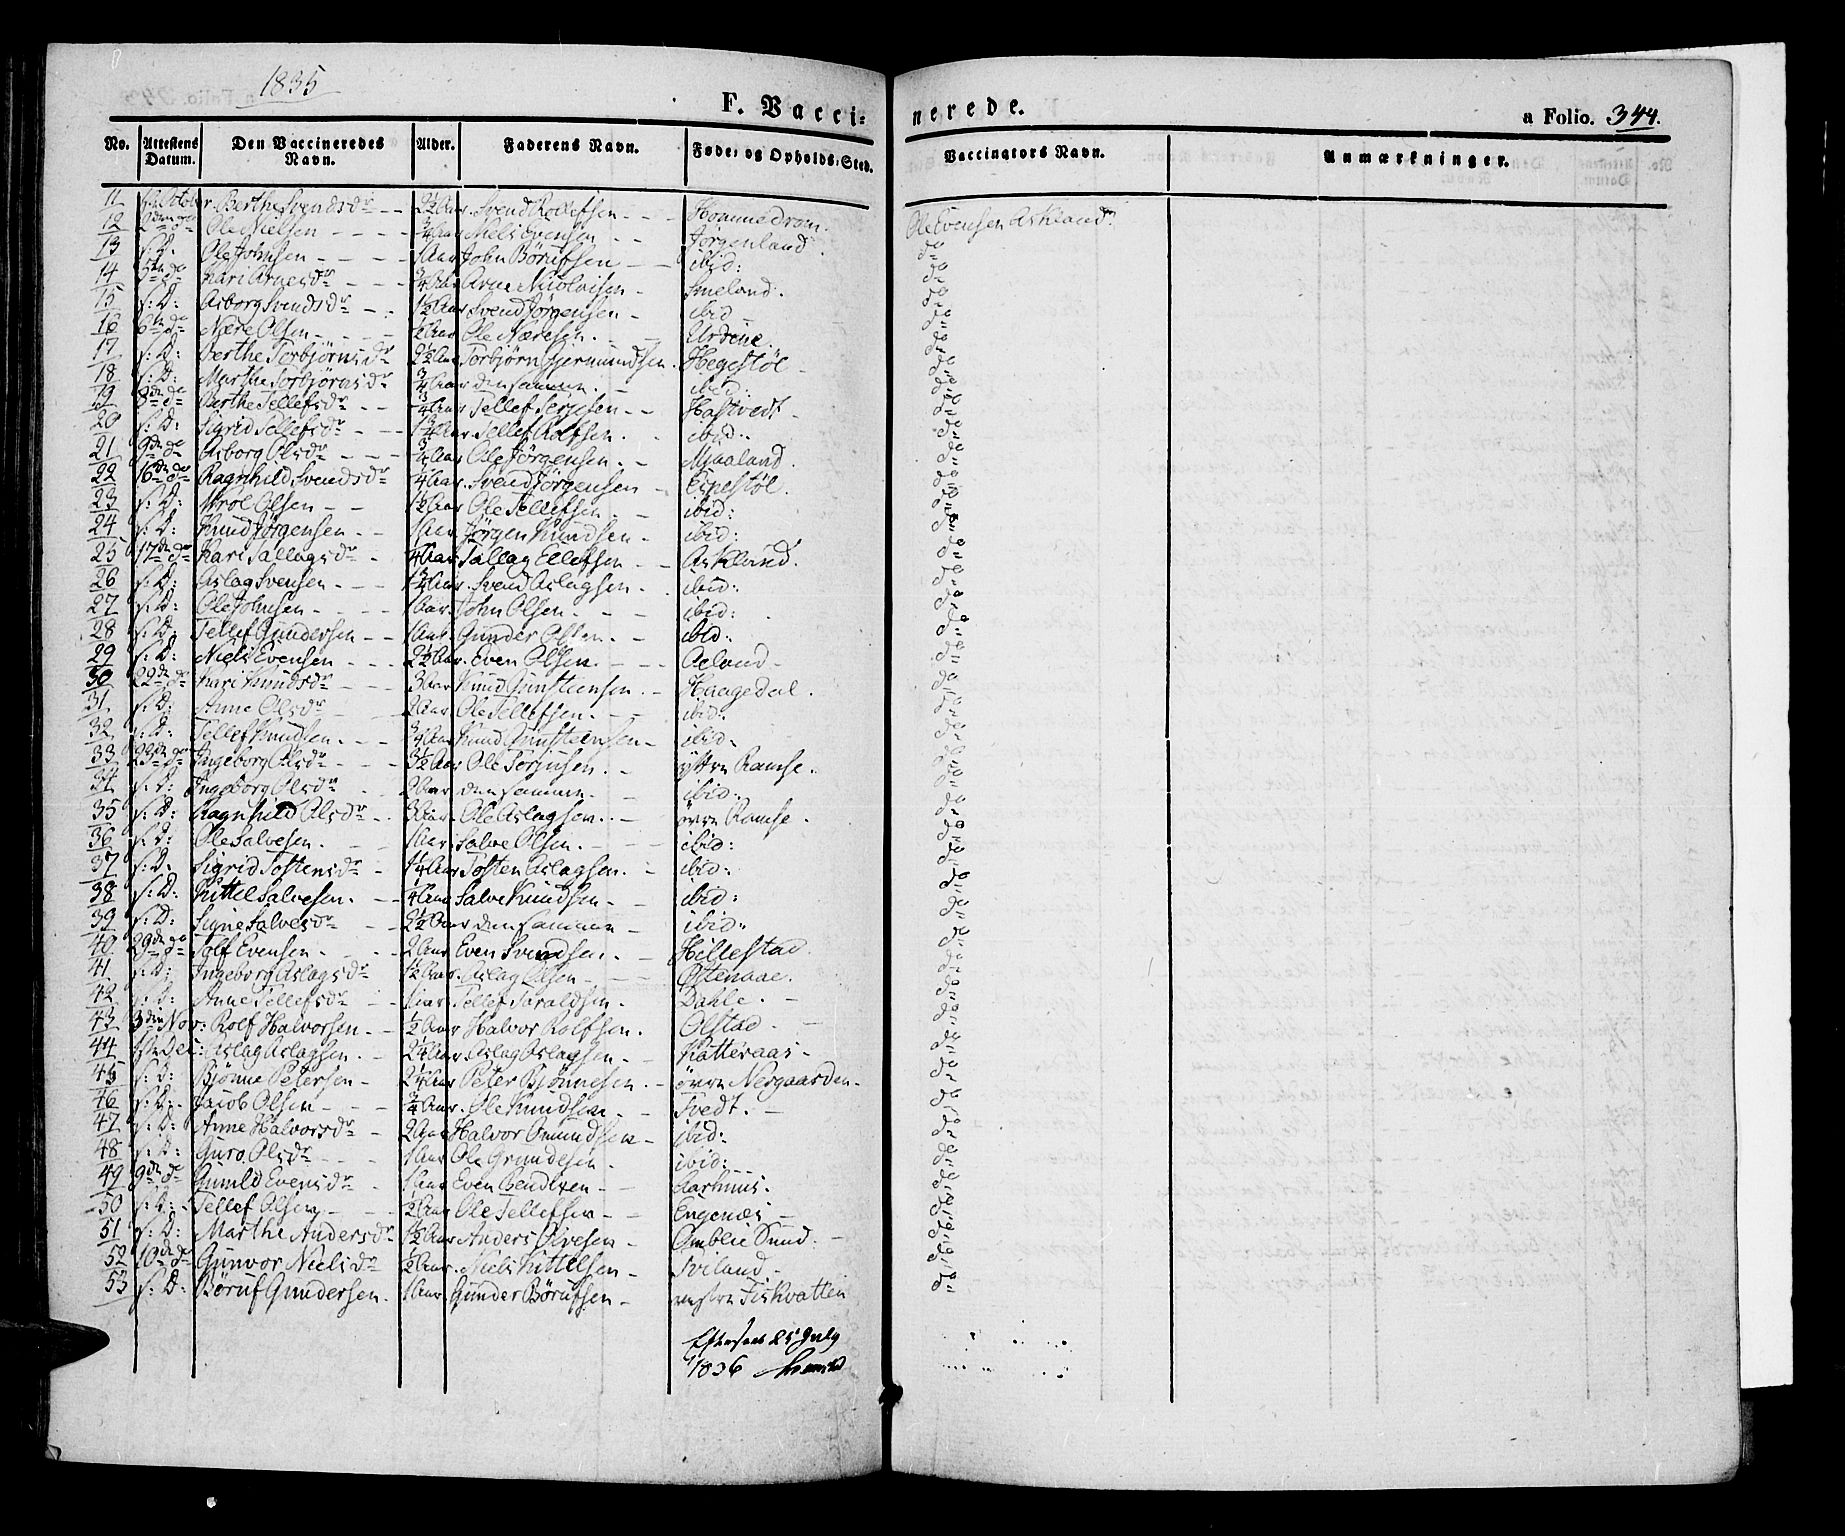 1835
F. Vaccinerede.
a Folio. 344.
No. Attestens Datum. Den Vaccineredes Navn. Alder. Faderens Navn. Føde- og Opholds-Sted. Vaccinators Navn. Anmærkninger.
11 October Berthe Svendsdr 2½ Aar. Svend Rollefsen Hommedrom. Ole Evensen Askland
12 2den do Ole Nielsen ¾ Aar Niels Evensen Jörgenland. do
13 s: D: Ole Johnsen 1 Aar John Börufsen ibid: do
14 5te do Kari Arnesdr ¾ Aar Arne Nicolaisen Smeland. do
15 s: D: Asborg Svendsdr 1½ Aar Svend Jörgensen ibid do
16 6te do Nære Olsen ½ Aar Ole Næresen Urdene. do
17 s: D: Berthe Torbjörnsdr 2½ Aar Torbjörn Gjermundsen. Hegestöl do
18 s: D: Marthe Torbjörnsdr ¾ Aar den samme. ibid. do
19 8de do Berthe Tellefsdr ¾ Aar Tellef Terjesen Hastvedt do
20 s: D: Sigrid Tellefsdr 1¾ Aar Tellef Rolfsen. ibid. do
21 9de do Asborg Olsdr ¾ Aar Ole Jörgensen. Mjaaland. do
22 16de do Ragnhild Svendsdr ¼ Aar. Svend Jörgensen Espestöl. do
23 s: D: Olsen 1½ Aar Ole Tellefsen ibid: do
24 s: D: Knud Jörgensen 1 Aar Jörgen Knudsen ibid: do
25 17de do Kari Sallagsdr ¼ Aar. Sallag Ellefsen Askland. do
26 s: D: Aslag Svensen 1¼ Aar. Svend Aslagsen ibid: do
27 s: D: Ole Johnsen 1 Aar. John Olsen ibid: do
28 s: D: Tellef Gundersen 1 Aar. Gunder Olsen ibid: do
29 s: D: Niels Evensen 2½ Aar. Even Olsen. Aeland do
30 22de do Kari Knudsdr 3 Aar Knud Gunsteensen. Haagedal. do
31 s: D: Anne Olsdr 2 Aar Ole Tellefsen. ibid. do
32 s: D: Tellef Knudsen ¾ Aar Knud Gunsteensen ibid. do
33 23de do Ingeborg Olsdr 3½ Aar Ole Terjusen. yttre Ramse. do
34 s: D: Ingeborg Olsdr 2 Aar den samme. ibid. do
35 s: D: Ragnhild Olsdr 3 Aar Ole Aslagsen. övre Ramse. do
36 s: D: Ole Salvesen. 1 Aar. Salve Olsen. ibid: do
37 s: D: Sigrid Tostensdr ¼ Aar Tosten Aslagsen. ibid: do
38 s: D: Kittel Salvesen. ¼ Aar Salve Knudsen ibid: do
39 s: D: Signe Salvesdr 2½ Aar den samme ibid: do
40 29de do Evensen 2 Aar Even Svendsen. Hillestad do
41 s: D: Ingeborg Aslagsdr 1½ Aar. Aslag Olsen do
42 s: D: Anne Tellefsdr 1 Aar Tellef Taraldsen. Dahle. do
43 3die Nov: Rolf Halvorsen ½ Aar Halvor Rolfsen. Olstad. do
44 Dec: Aslag Aslagsen. 2¼ Aar Aslag Aslagsen Katteraas do
45 s: D: Bjönne Petersen 2¼ Aar Peter Bjönnesen. övre Nesgaarden do
46 s: D: Jacob Olsen ¾ Aar. Ole Knudsen. Tvedt. do
47 s: D: Anne Halvorsdr 2 Aar Halvor Omundsen ibid: do
48 s: D: Guro Olsdr 1 Aar Ole Grundesen. ibid: do
49 9de do Gunild Evensdr 1 Aar Even Bendixen Aarhuus. do
50 s: D: Tellef Olsen ½ Aar Ole Tellefsen Engenæs do
51 s: D: Marthe Andersdr 1½ Aar Anders Olvesen Omblie Sund. do
52 10de do Gunvor Nielsdr ½ Aar. Niels Kittelsen Tviland do
53 s: D: Böruf Gundersen. 1 Aar. Gunder Börufsen Fiskvatten do
Efterseet 25 July
1836